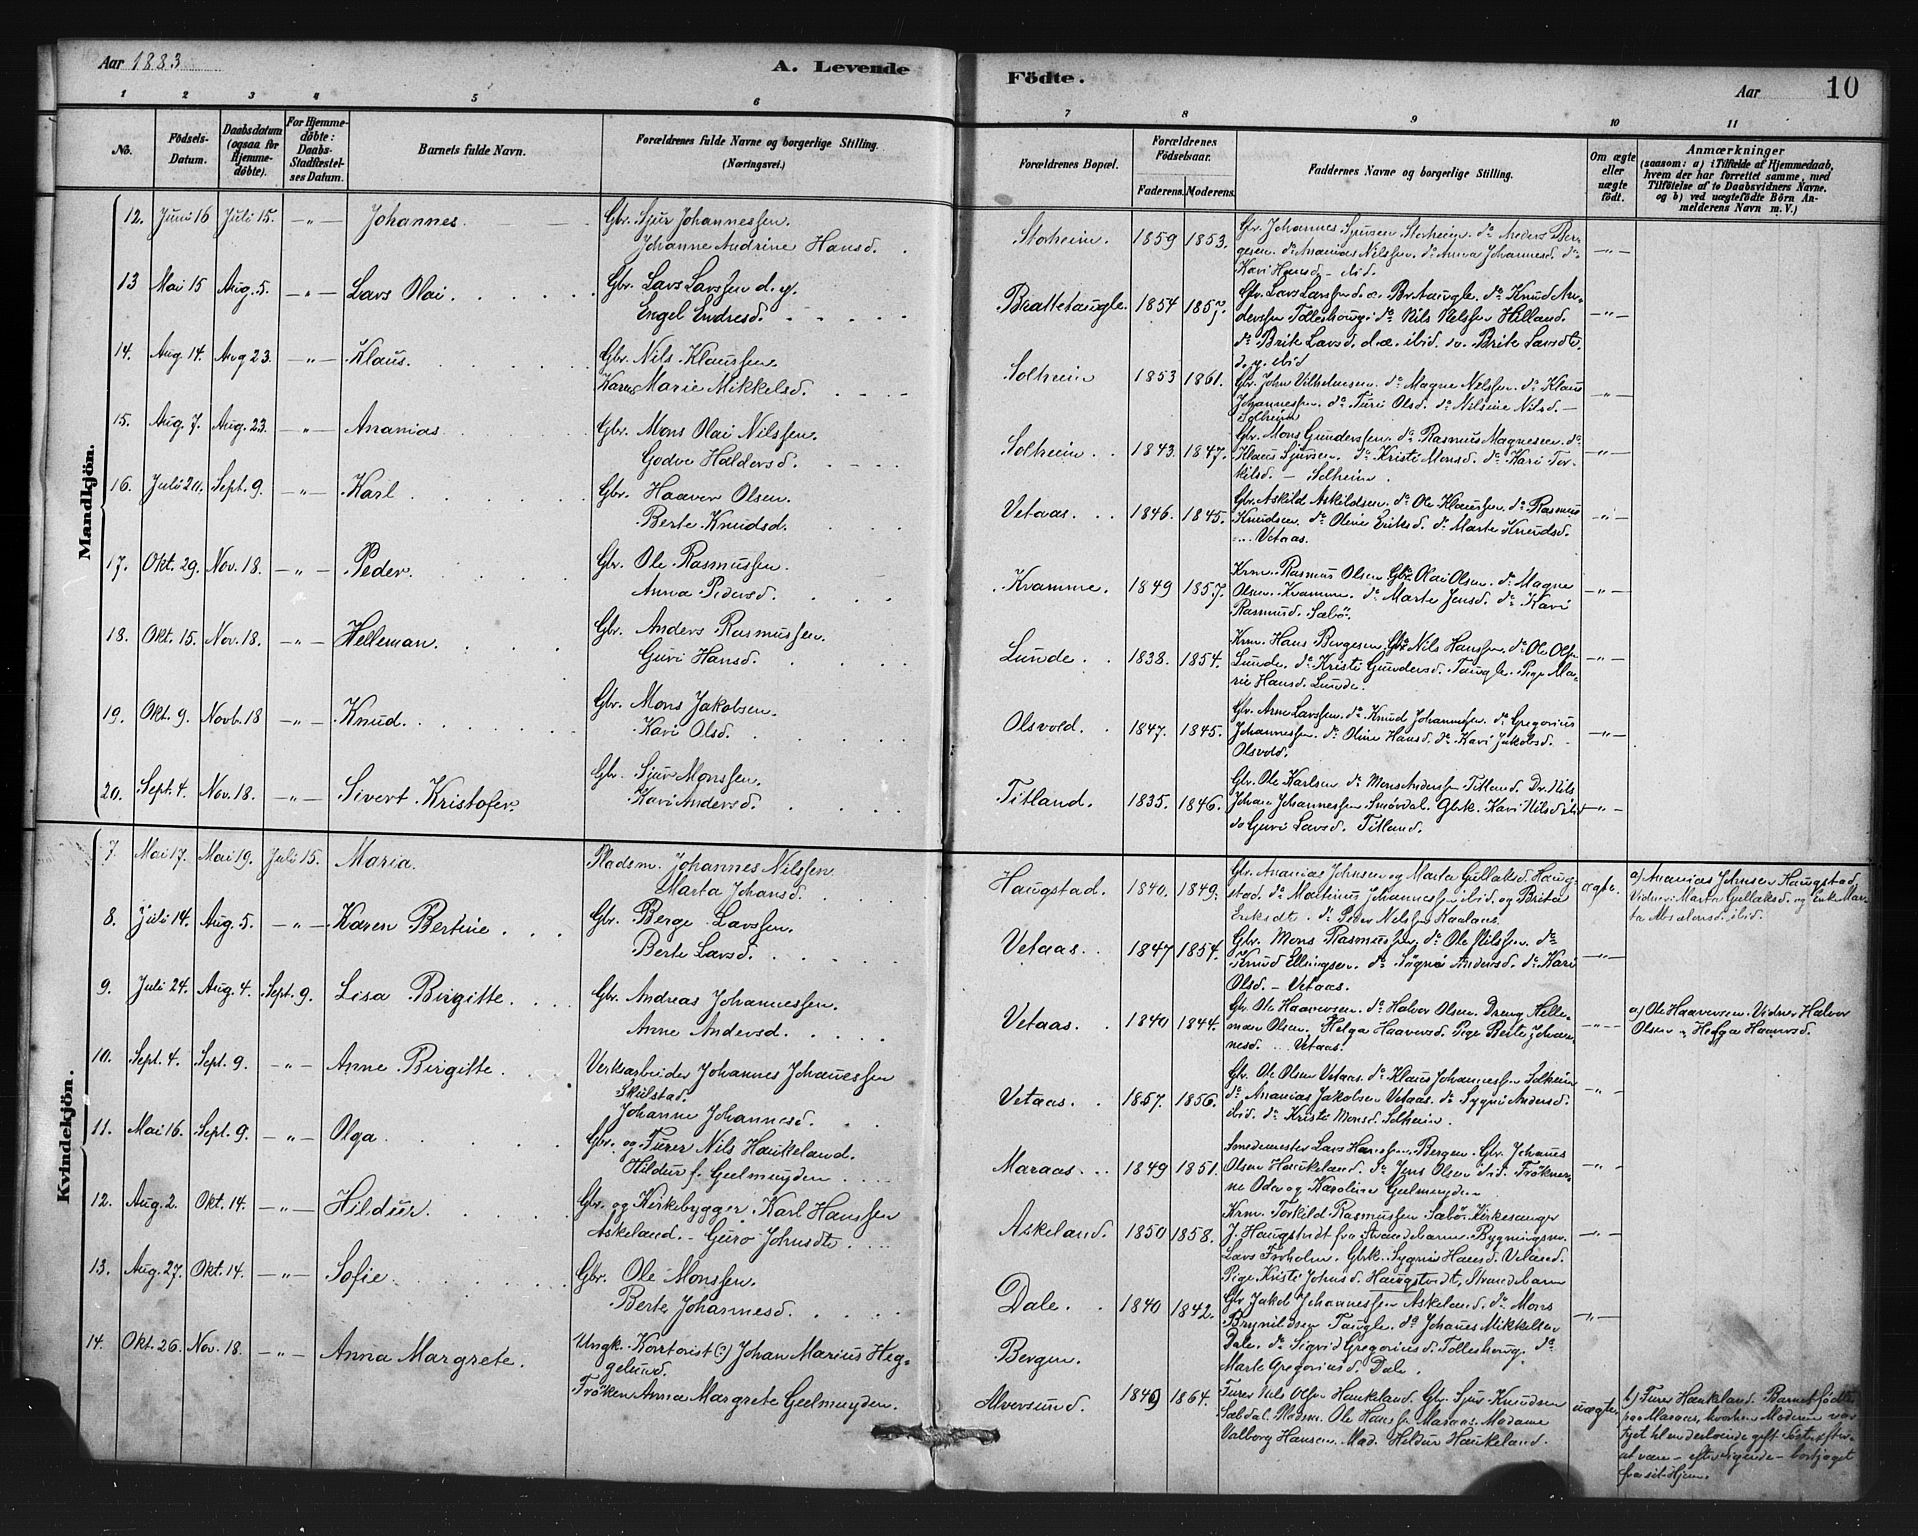 Aar 1883
A. Levende
Födte.
Aar
10
1 2 3 4 5 6 7 8 9 10 11
No.
Födsels-Datum.
Daabsdatum (ogsaa for Hjemme-döbte).
For Hjemme-döbte: Daabs-Stadfæstel-ses Datum.
Barnets fulde Navn.
Forældrenes fulde Navne og borgerlige Stilling. (Næringsvei.)
Forældrenes Bopæl.
Forældrenes Födselsaar.
Faderens. Moderens.
Faddernes Navne og borgerlige Stilling.
Om ægte eller uægte födt.
Anmærkninger
(saasom: a) i Tilfælde af Hjemmedaab, hvem der har forrettet samme, med Tilföielse af to Daabsvidners Navne. og b) ved uægtefödte Börn An-melderens Navn m. V.)
Mandkjön.
12. Juni 16 Juli 15. —"— Johannes. Gbr. Sjur Johannessen. Johanne Andrine Hansd. Storheim. 1859 1853. Gbr. Johannes Sjursen Storheim. do Anders Ber-
gesen. do Ananias Nilssen. do Anna Johannesd. do
Kari Hansd. – ibid. —"—
13 Mai 15 Aug. 5. —"— Lars Olai. Gbr. Lars Larssen d. y. Engel Endresd. Brattetaugle. 1854 1857. Gbr. Lars Larssen d. æ. Br.taugle. do Knud An-
derssen Tolleshoug. do Nils Nilssen Hilland.
do Brite Larsd. d. æ. ibid. do. Brite Larsdt.
d. y. ibid —"—
14. Aug. 14. Aug 23. —"— Klaus. Gbr. Nils Klaussen. Karen Marie Mikkelsd. Solheim 1853 1861. Gbr. John Vilhelmsen. do Magne Nilssen. do Klaus
Johannessen. do Turi Olsd. do Nilsine Nilsd. –
Solheim —"—
15. Aug. 7. Aug. 23. —"— Ananias Gbr. Mons Olai Nilssen. Godve Haldersd. Solheim. 1843. 1847. Gbr. Mons Gunderssen. do Rasmus Magnesen. do
Klaus Sjursen. do Kristi Monsd. do Kari Tor-
kilsd. – Solheim. —"—
16. Juli 20. Sept. 9. —"— Karl Gbr. Haaver Olsen. Berte Knudsd. Vetaas. 1846. 1845. Gbr. Askild Askildsen. do Ole Klaussen. do Rasmus
Knudsen. do Oline Eriksd. do Marte Knudsd.
Vetaas. —"—
17. Okt. 29. Nov. 18. —"— Peder. Gbr. Ole Rasmussen. Anna Pedersd. Kvamme. 1849 1857. Krm. Rasmus Olsen. Gbr. Olai Olsen. do Magne
Olsen. Kvamme. do Marte Jensd. do Kari
Rasmusd. Sæbö. —"—
18. Okt. 15. Nov. 18. —"— Helleman. Gbr. Anders Rasmussen. Guri Hansd. Lunde. 1838. 1854. Krm. Hans Bergesen. Gbr Nils Hanssen. do Ole Olsen
Lunde. do Kristi Gundersd. Taugle. Pige Ma-
rie Hansd. Lunde. —"—
19. Okt. 9. Novb. 18 —"— Knud. Gbr. Mons Jakobsen. Kari Olsd. Olsvold. 1847. 1845. Gbr. Arne Larssen. do Knud Johannessen. do Gregorius
Johannessen. do Oline Hansd. do Kari Jakobsd. –
Olsvold. —"—
20. Sept. 4. Nov. 18. —"— Sivert Kristofer. Gbr. Sjur Monssen. Kari Andersd. Titland. 1835. 1846. Gbr. Ole Karlsen do Mons Anderssen Titland. Dr. Nils
Johan Johannessen Smördal. Gbrk. Kari Nilsd ibid
do Guri Larsd. Titland. —"—
Kvindekjön.
7. Mai 17. Mai 19. Juli 15. Maria. Pladsm. Johannes Nilssen. Marta Johansd. Haugstad. 1840. 1849. Gbr. Ananias Johnsen og Marta Gullaksd. Haug-
stad. do Martinus Johannessen ibid. og Brita
Eriksdt. do Peder Nilssen Kaalaas. ægte. a) Ananias Johnsen Haugstad.
Vidner: Marta Gullaksd. og Enke Mar-
ta Absalonsd. ibid.
8. Juli 14. Aug. 5. —"— Karen Bertine. Gbr. Berge Larssen. Berte Larsd. Vetaas. 1847 1854. Gbr. Mons Rasmussen. do Ole Nilssen. do
Knud Ellingsen. do Sygni Andersd. do Kari
Olsd. – Vetaas. —"—
9. Juli 24. Aug. 4. Sept. 9. Lisa Birgitte. Gbr. Andreas Johannessen. Anne Andersd. Vetaas. 1840 1844. Gbr. Ole Haaversen. do Halvor Olsen. Dreng Helle-
man Olsen. Helga Haaversd. Pige Berte Johan-
nesd. Vetaas. —"— a) Ole Haaversen. Vidner Halvor
Olsen " Helga Haaversd.
10. Sept. 4. Sept. 9. —"— Anne Birgitte. Verksarbeider Johannes Johanessen
Skulstad. Johanne Johannesd. Vetaas. 1857. 1856. Gbr. Ole Olsen Vetaas. do Klaus Johannessen Solheim
do. Ananias Jakobsen Vetaas. do Sygni Andersd.
ibid. do Kristi Monsd. Solheim. —"—
11. Mai 16. Sept. 9. —"— Olga Gbr. og Furer Nils Haukeland. Hildur f. Geelmuyden. Maraas. 1849 1851. Smedemester Lars Hanssen, Bergen. Gbr. Johanes
Olsen Haukeland. do Jens Olsen ibid. Frökner-
ne Oda og Karoline Geelmuyden —"—
12. Aug. 2. Okt. 14. —"— Hildur. Gbr. og Kirkebygger. Karl Hanssen
Askeland. – Guro Johnsdt. Askeland. 1850 1858. Krm. Torkild Rasmussen Sæbö. Kirkesanger
J. Haugstvedt fra Strandebarm. Bygningsm.
Lars Forholm. Gbrk. Sygni Hansd. Veland.
Pige Kristi Johnsd. Haugstvedt, Strandebarm —"—
13. Aug. 27. Okt. 14. —"— Sofie. Gbr. Ole Monssen. Berte Johannesd. Dale. 1840 1842. Gbr Jakob Johannessen Askeland. do Mons
Brynildsen Taugle. do Johanes Mikkelsen
Dale. do Sigrid Gregoriusd. Tolleshoug. do
Marte Gregoriusd. Dale. —"—
14. Okt. 26. Nov. 18. —"— Anna Margrete. Ungk. Kontorist (:) Johan Marius Heg-
gelund. Fröken Anna Margrete Geelmuyden. Bergen. Alversund. 1849 1864. Furer Nils Olsen Haukeland. Gbr. Sjur Knudsen
Sæbdal. Pladsm. Ole Hanssen Maraas. Madame
Valborg Hansen. Mad. Hildur Haukeland. uægte. b) Furer Haukeland. Barnet födtes
paa Maraas, hvorhen Moderen var
tyet til en derboende gift Söster efter
at være – efter Sigende – bortjaget
fra sit Hjem.